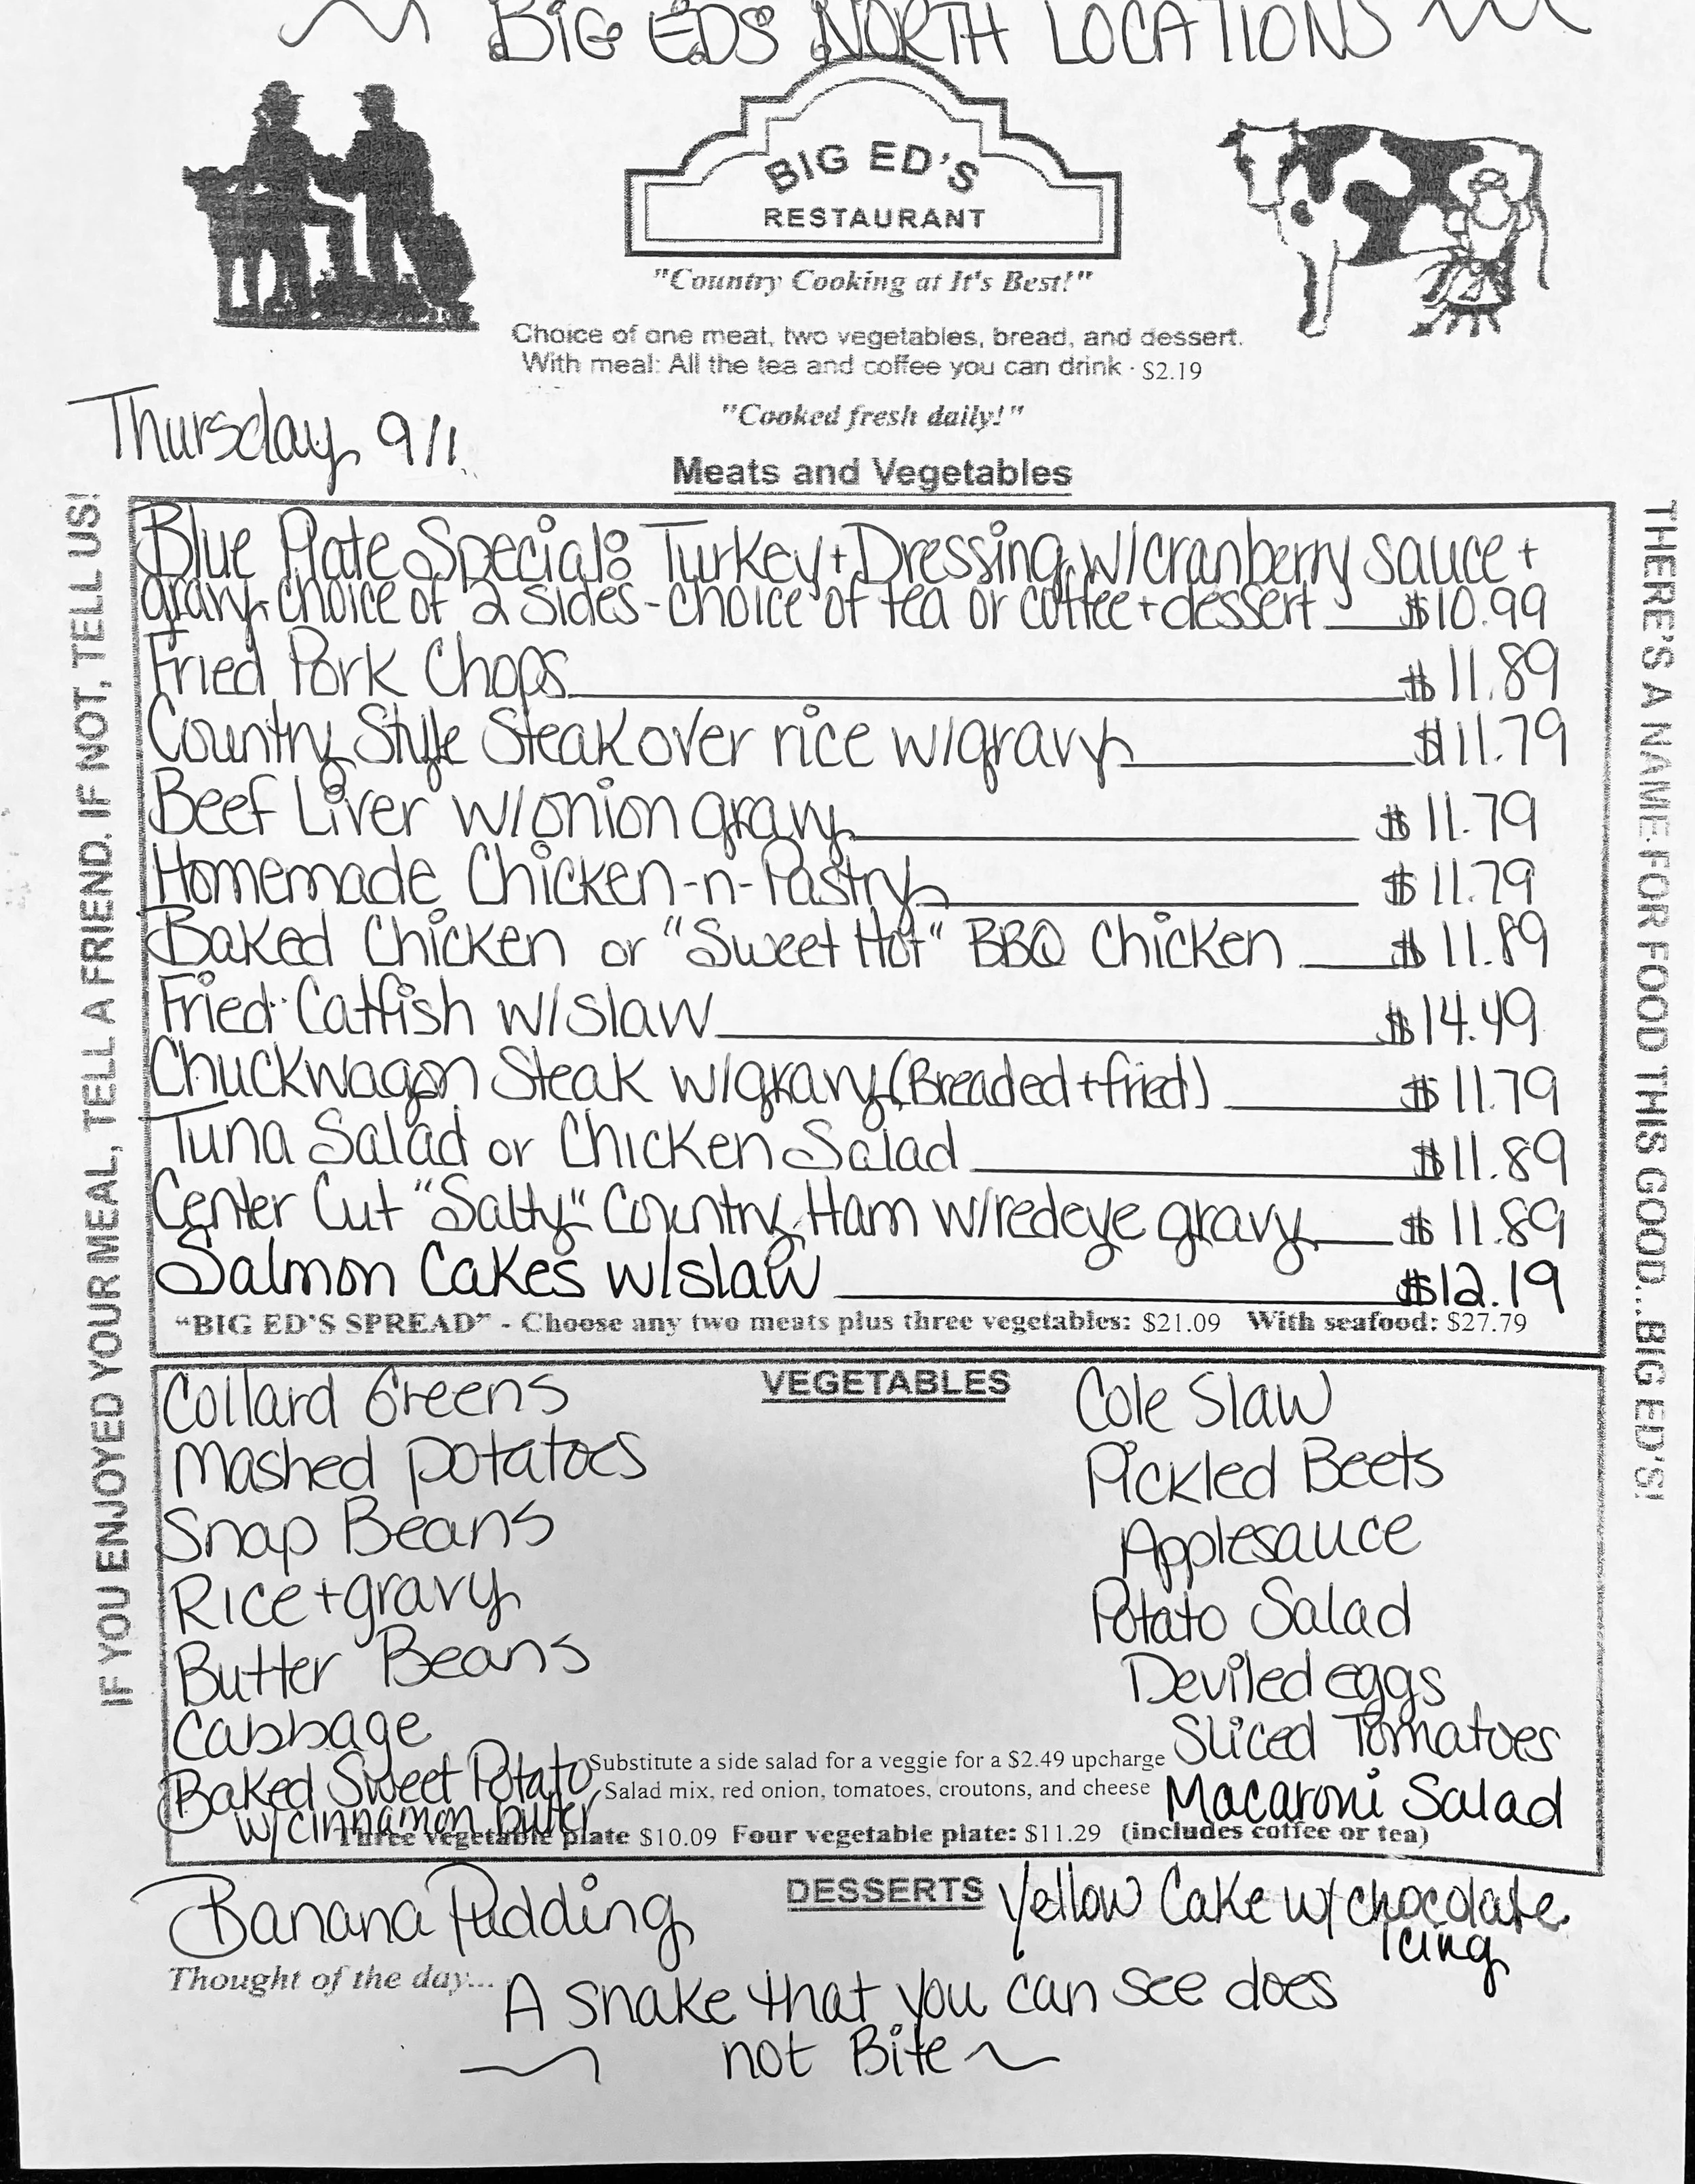 BIG EDS NORTH LOCATIONS
BIG ED'S
RESTAURANT
"Country Cooking at It's Best!"
Choice of one meat, two vegetables, bread, and dessert.
With meal: All the tea and coffee you can drink · $2.19
"Cooked fresh daily!"
Thursday 9/11
Meats and Vegetables
IF YOU ENJOYED YOUR MEAL, TELL A FRIEND. IF NOT, TELL US!
Blue Plate Special: Turkey + Dressing w/cranberry sauce +
gravy choice of 2 sides - choice of tea or coffee + dessert $10.99
Fried Pork Chops $11.89
Country Style Steak over rice w/gravy $11.79
Beef Liver w/onion gravy $11.79
Homemade Chicken-n-Pastry $11.79
Baked Chicken or "Sweet Hot" BBQ Chicken $11.89
Fried Catfish w/slaw $14.49
Chuckwagon Steak w/gravy (Breaded + fried) $11.79
Tuna Salad or Chicken Salad $11.89
Center Cut "Salty" Country Ham w/redeye gravy $11.89
Salmon Cakes w/slaw $12.19
"BIG ED'S SPREAD" - Choose any two meats plus three vegetables: $21.09 With seafood: $27.79
THERE'S A NAME FOR FOOD THIS GOOD...BIG ED'S!
VEGETABLES
Collard Greens
Mashed potatoes
Snap Beans
Rice + gravy
Butter Beans
Cabbage
Baked Sweet Potato
w/cinnamon butter
Cole Slaw
Pickled Beets
Applesauce
Potato Salad
Deviled eggs
Sliced Tomatoes
Macaroni Salad
Substitute a side salad for a veggie for a $2.49 upcharge
Salad mix, red onion, tomatoes, croutons, and cheese
Three vegetable plate $10.09 Four vegetable plate: $11.29 (includes coffee or tea)
DESSERTS
Banana Pudding
Yellow Cake w/chocolate
Icing
Thought of the day...
A snake that you can see does
not Bite